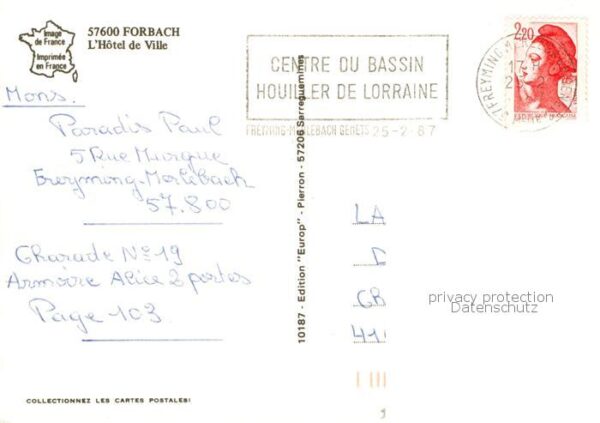 Image
de France
Imprimée
en France
57600 FORBACH
L'Hôtel de Ville
Mons.
Paradis Paul
5 Rue
Freyming-Merlebach
57.800
Charade N° 19
Armoire Alice 2 portes
Page 103
COLLECTIONNEZ LES CARTES POSTALES!
10187 - Edition "Europ" - Pierron - 57206 Sarreguemines
CENTRE DU BASSIN
HOUILLER DE LORRAINE
FREYMING-MERLEBACH GENETS 25-2-87
2,20
LA
GR
privacy protection
Datenschutz